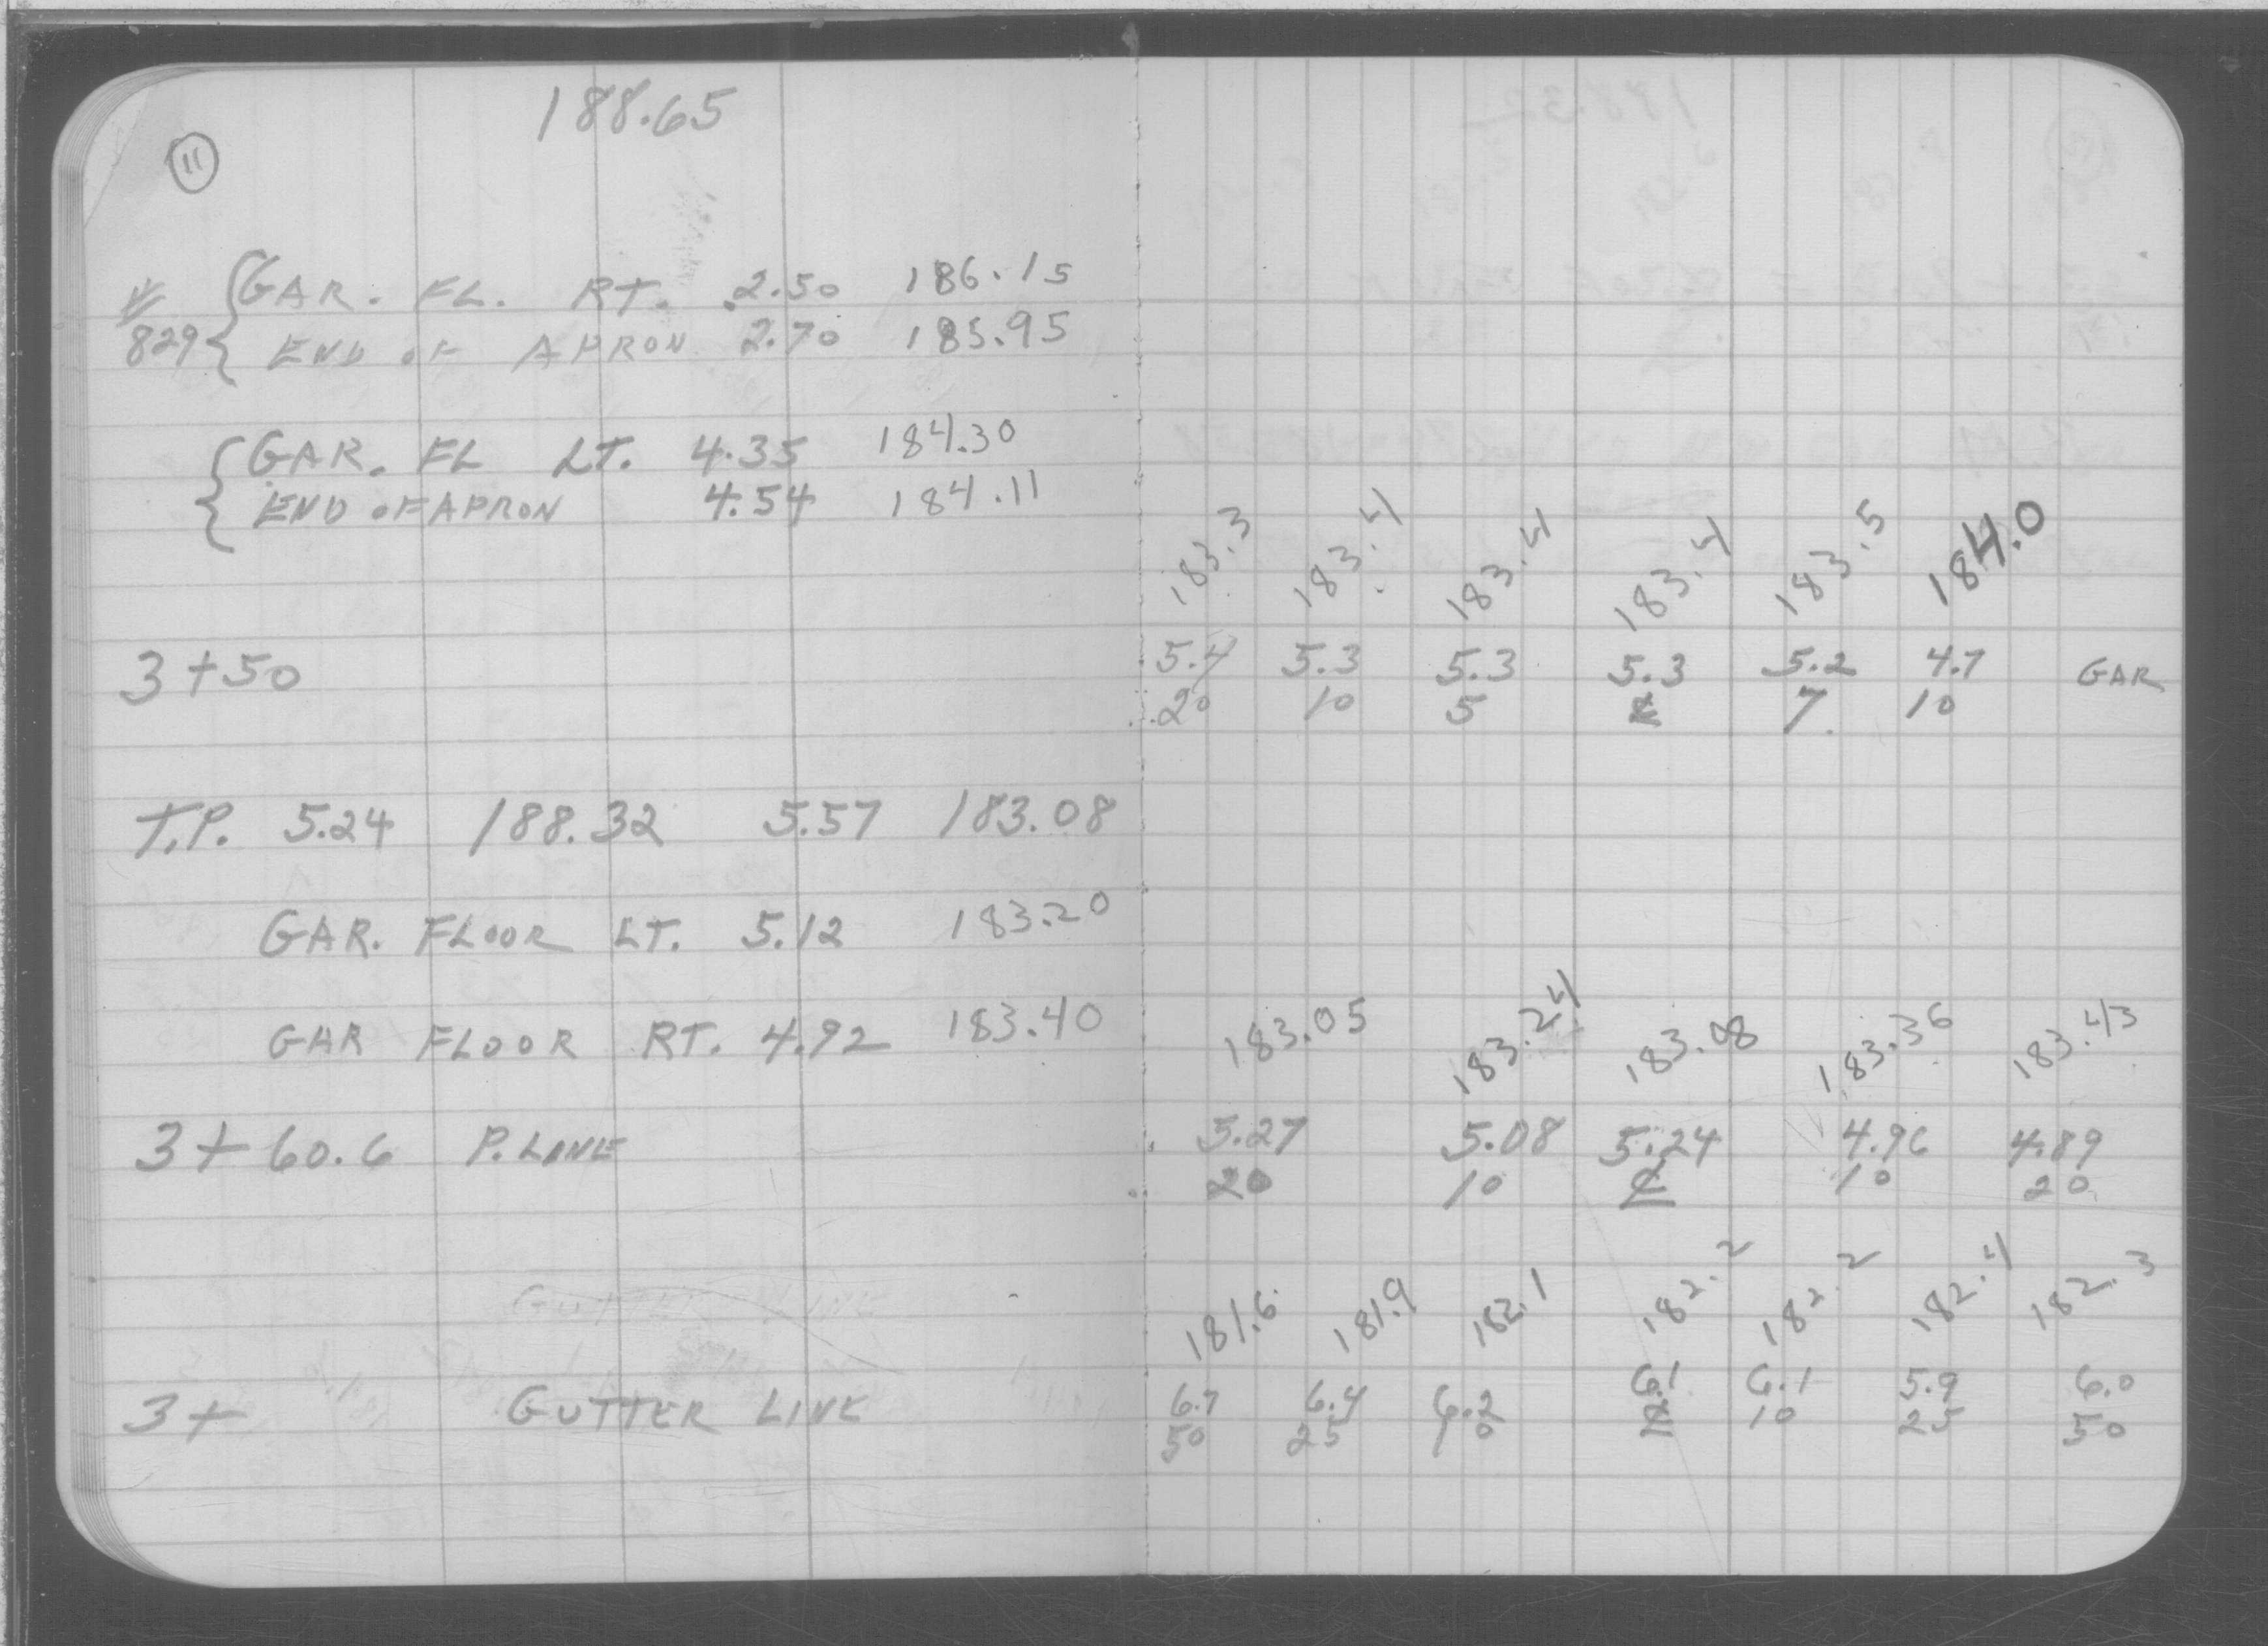 188.65
11
# { GAR. FL. RT. 2.50 186.15
829 { END OF APRON 2.70 185.95
{ GAR. FL LT. 4.35 184.30
{ END OF APRON 4.54 184.11
183.3 183.4 183.4 183.4 183.5 184.0
3+50 5.4 5.3 5.3 5.3 5.2 4.7 GAR
20 10 5 ℄ 7 10
T.P. 5.24 188.32 5.57 183.08
GAR. FLOOR LT. 5.12 183.20
GAR FLOOR RT. 4.92 183.40
183.05 183.24 183.08 183.36 183.43
3+60.6 P. LINE 5.27 5.08 5.24 4.96 4.89
20 10 ℄ 10 20
GUTTER LINE
181.6 181.9 182.1 182.2 182.2 182.4 182.3
3+ GUTTER LINE 6.7 6.4 6.2 6.1 6.1 5.9 6.0
50 25 10 ℄ 10 25 50